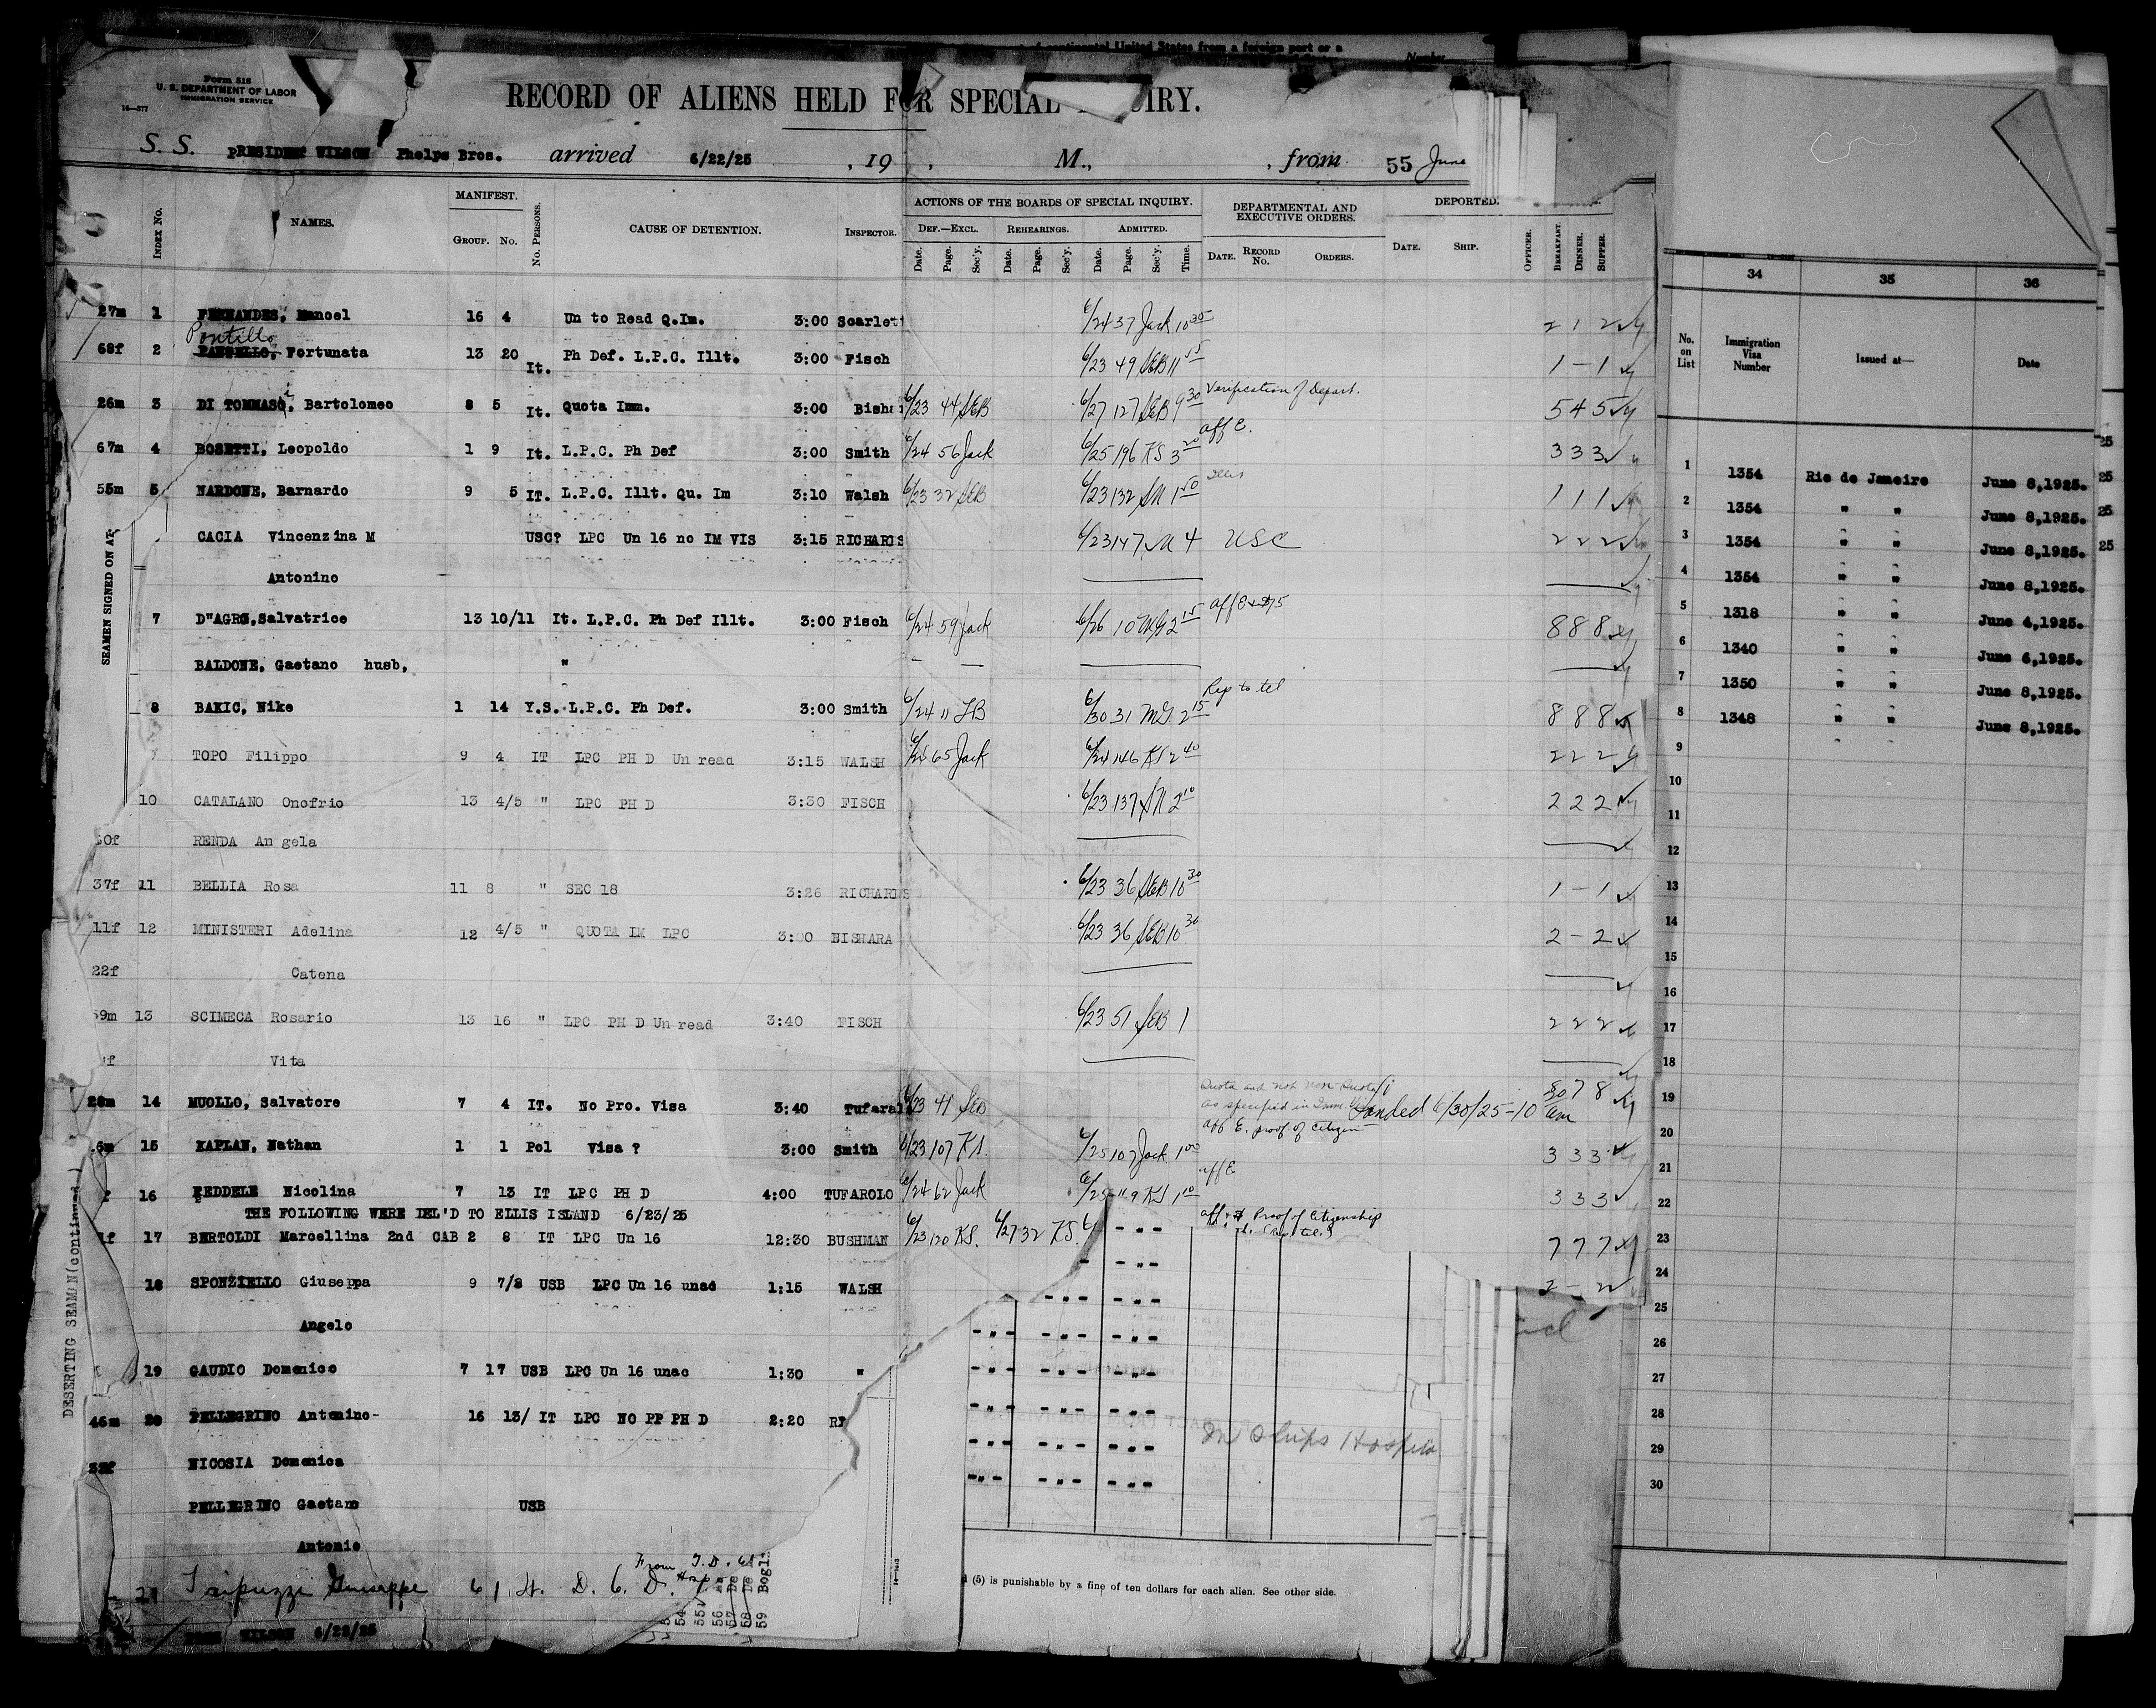 of continental United States from a foreign port or a
Number
Form 518
U. S. DEPARTMENT OF LABOR
IMMIGRATION SERVICE
16—377
RECORD OF ALIENS HELD FOR SPECIAL IRY.
S. S. PRESIDENT WILSON Phelps Bros. arrived 6/22/25 , 19 , M., , from 55 June
INDEX No. NAMES. MANIFEST. GROUP. No. No. PERSONS. CAUSE OF DETENTION. INSPECTOR.
ACTIONS OF THE BOARDS OF SPECIAL INQUIRY. DEF.—EXCL. REHEARINGS. ADMITTED.
Date. Page. Sec'y. Date. Page. Sec'y. Date. Page. Sec'y. Time.
DEPARTMENTAL AND EXECUTIVE ORDERS. DATE. RECORD No. ORDERS.
DEPORTED. DATE. SHIP. OFFICER. BREAKFAST. DINNER. SUPPER.
27m 1 FERNANDES, Manoel 16 4 Un to Read Q.Im. 3:00 Scarlett 6/24 37 Jack 10 30 2 1 2
Pontillo
68f 2 Fortunata 13 20 It. Ph Def. L.P.C. Illt. 3:00 Fisch 6/23 49 SEB 11 15 1 - 1
26m 3 DI TOMMASO, Bartolomeo 8 5 It. Quota Imm. 3:00 Bisha 6/23 44 SEB 6/27 127 SEB 9 30 Verification of Depart. 5 4 5
67m 4 BOSETTI, Leopoldo 1 9 It. L.P.C. Ph Def 3:00 Smith 6/24 56 Jack 6/25 196 KS 3 20 aff E. 3 3 3
55m 5 NARDONE, Barnardo 9 5 IT. L.P.C. Illt. Qu. Im 3:10 Walsh 6/23 32 SEB 6/23 132 SN 1 50 1 1 1
CACIA Vincenzina M USC? LPC Un 16 no IM VIS 3:15 RICHARDS 6/23 147 SN 4 USC 2 2 2
Antonino
7 D"AGRO, Salvatrice 13 10/11 It. L.P.C. Ph Def Illt. 3:00 Fisch 6/24 59 Jack 6/26 10 MG 2 15 aff E 8 8 8
BALDONE, Gaetano husb, "
8 BAKIC, Nike 1 14 Y.S. L.P.C. Ph Def. 3:00 Smith 6/24 11 LB 6/30 31 MG 2 15 Rep to tel 8 8 8
TOPO Filippo 9 4 IT LPC PH D Un read 3:15 WALSH 6/24 65 Jack 6/24 146 KS 2 40 2 2 2
10 CATALANO Onofrio 13 4/5 " LPC PH D 3:30 FISCH 6/23 137 SN 2 10 2 2 2
RENDA Angela
37f 11 BELLIA Rosa 11 8 " SEC 18 3:26 RICHARDS 6/23 36 SEB 10 30 1 - 1
11f 12 MINISTERI Adelina 12 4/5 " QUOTA IM LPC 3:00 BISHARA 6/23 36 SEB 10 30 2 - 2
22f Catena
13 SCIMECA Rosario 13 16 " LPC PH D Un read 3:40 FISCH 6/23 51 SEB 1 2 2 2
Vita
28m 14 MUOLLO, Salvatore 7 4 IT. No Pro. Visa 3:40 Tufaral 6/23 41 SEB Quota and not non-Quota as specified in Imm. Visa Landed 6/30/25-10 am 7 8
15 KAPLAN, Nathan 1 1 Pol Visa ? 3:00 Smith 6/23 107 KS. 6/25 107 Jack 1 00 aff E. proof of citizen 3 3 3
16 FEDDELE Nicolina 7 13 IT LPC PH D 4:00 TUFAROLO 6/24 62 Jack 6/25 119 KS 1 10 aff E 3 3 3
THE FOLLOWING WERE DEL'D TO ELLIS ISLAND 6/23/25
17 BERTOLDI Marcellina 2nd CAB 2 8 IT LPC Un 16 12:30 BUSHMAN 6/23 120 KS. 6/27 32 KS. Proof of Citizenship 7 7 7
18 SPONZIELLO Giuseppa 9 7/8 USB LPC Un 16 unac 1:15 WALSH 2 - 2
Angelo
19 GAUDIO Domenico 7 17 USB LPC Un 16 unac 1:30 "
46m 20 PELLEGRINO Antonino- 16 13/ IT LPC NO PP PH D 2:20 RI
In Ships Hospital
32f NICOSIA Domenica
PELLEGRINO Gaetano USB
Antonio
21 Tripuzzi Giuseppe 6 1 It. D. C. D. From T. D. Hosp
WILSON 6/22/25
SEAMEN SIGNED ON AT
DESERTING SEAMAN (continued)
54
55
56
57
58
59 Bogl
(5) is punishable by a fine of ten dollars for each alien. See other side.
34 35 36
No. on List Immigration Visa Number Issued at— Date
1 1354 Rio de Janeiro June 8,1925.
2 1354 " " June 8,1925.
3 1354 " " June 8,1925.
4 1354 " " June 8,1925.
5 1318 " " June 4,1925.
6 1340 " " June 6,1925.
7 1350 " " June 8,1925.
8 1348 " " June 8,1925.
9
10
11
12
13
14
15
16
17
18
19
20
21
22
23
24
25
26
27
28
29
30
25
25
25
25